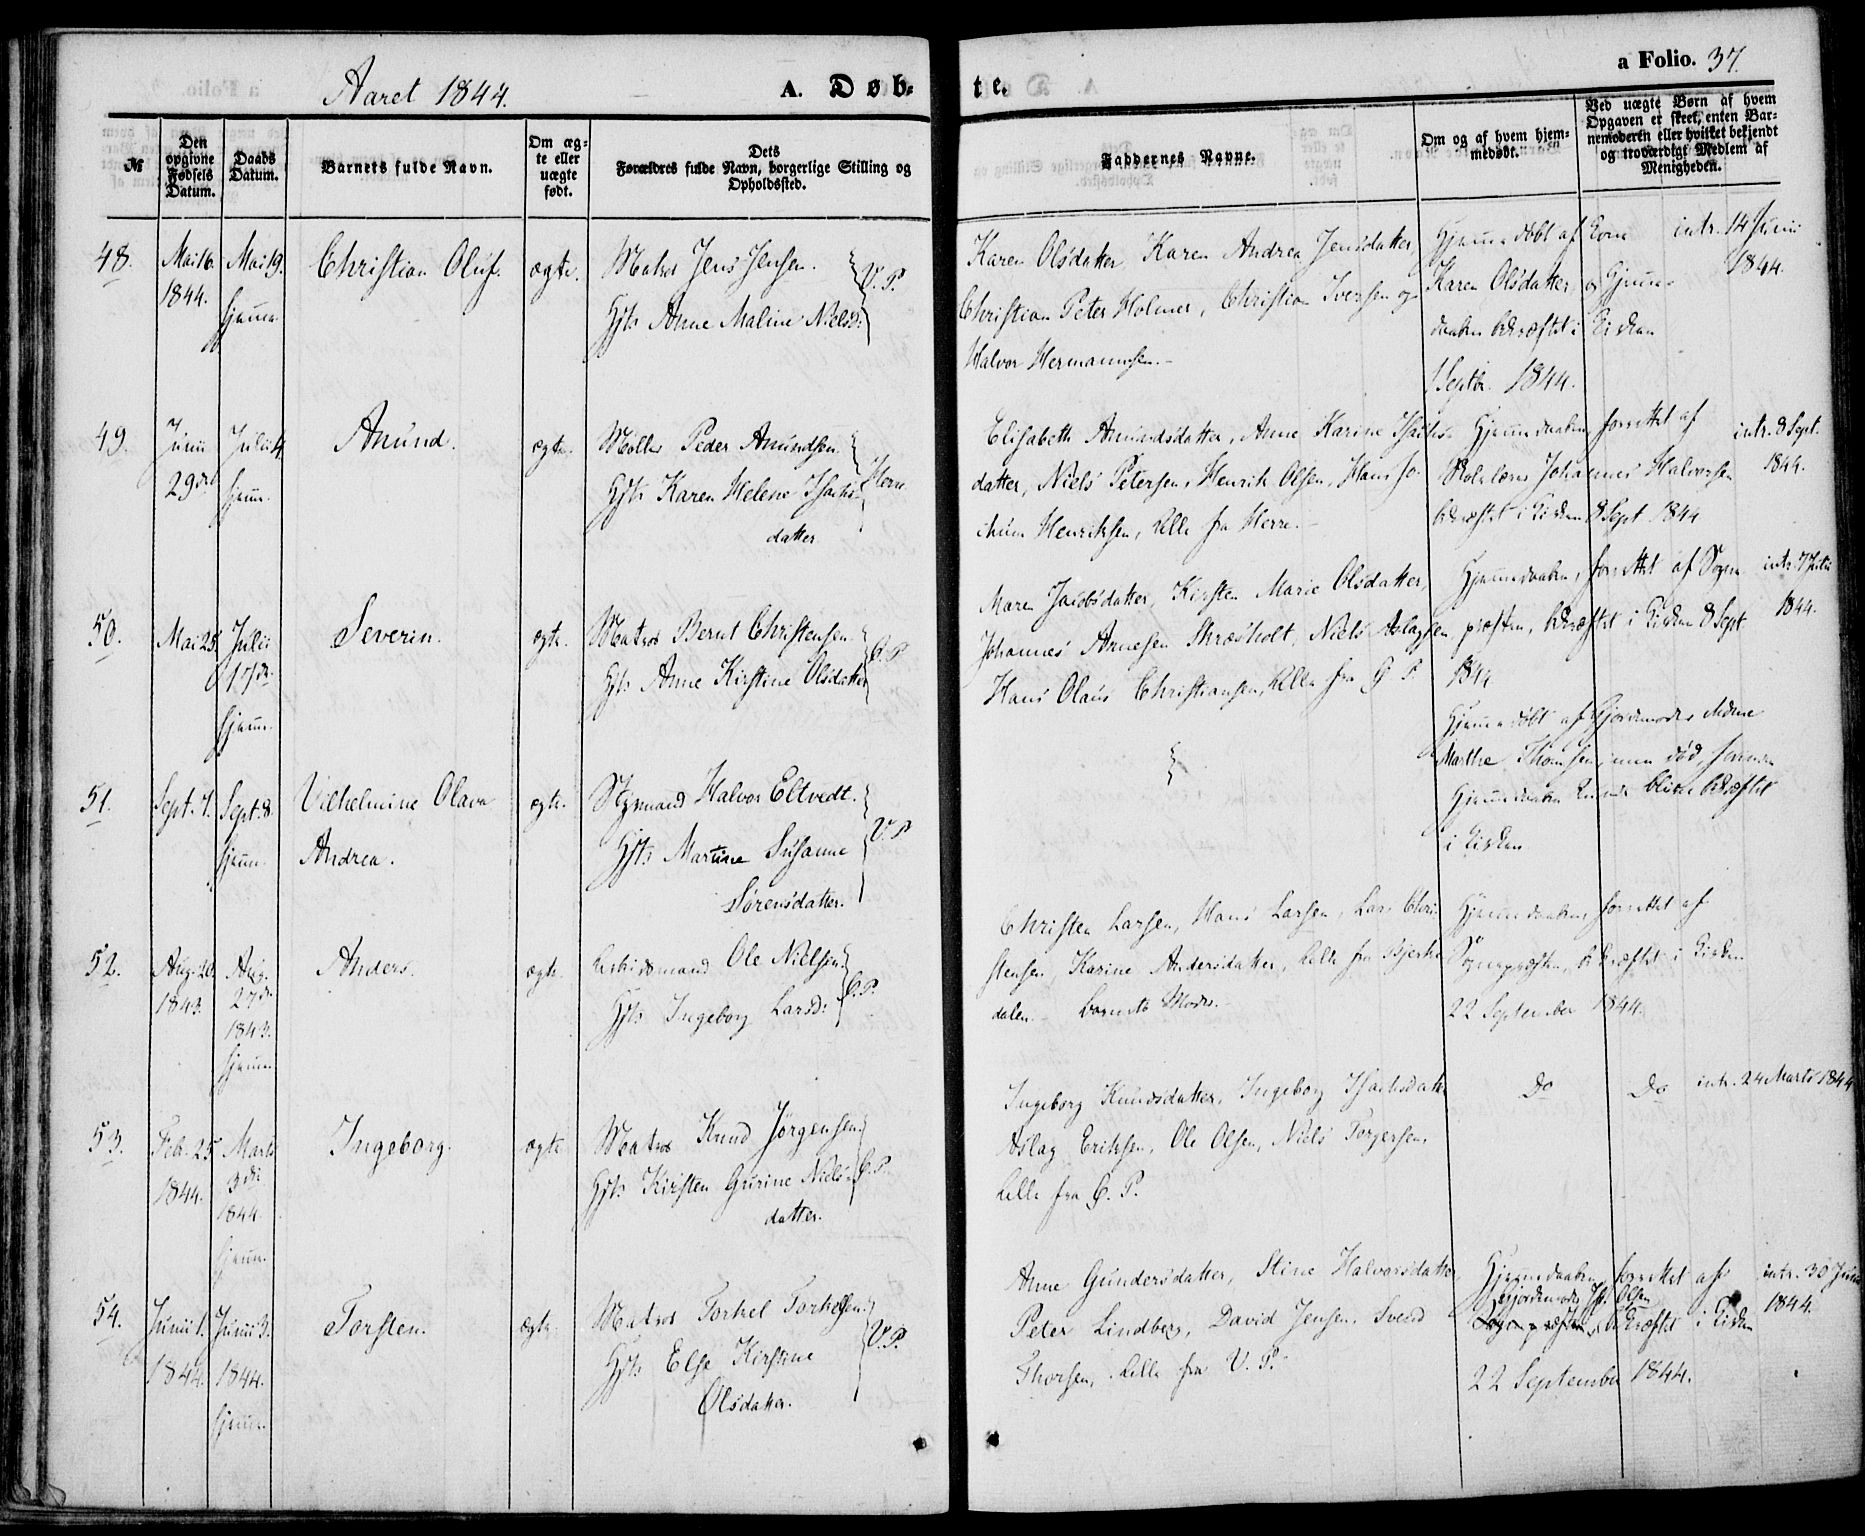 Aaret 1844.
A. Døb-
te.
a Folio. 37.
№
Den opgivne Fødsels Datum.
Daabs Datum.
Barnets fulde Navn.
Om ægte eller uægte født.
Dets Forældres fulde Navn, borgerlige Stilling og Opholdssted.
Faddernes Navne.
Om og af hvem hjemmedøbt.
Ved uægte Børn af hvem Opgaven er skeet, enten Barnemoderen eller hvilket bekjendt og troværdigt Medlem af Menigheden.
48. Mai 16. 1844. Mai 19. hjemme
Christian Oluf. ægte.
Matros Jens Jensen.
Hst: Anne Maline Nielsd: V. P.
Karen Olsdatter, Karen Andrea Jensdatter,
Christian Peter Holmer, Christian Iversen og
Halvor Hermannsen.
Hjemmedøbt af
Karen Olsdatter, og Hjemme-
daaben bekræftet i Kirken
1 Septbr. 1844.
intr. 14 Junii
1844.
49. Junii 29de Julii 4. hjem.
Amund. ægte.
Møller Peder Amundsen
Hst: Karen Helene Isachs-
datter Herre
Elisabeth Amundsdatter, Anne Karine Isachs-
datter, Niels Petersen, Henrik Olsen, Hans Jo-
chum Henriksen, Alle fra Herre.
Hjemmedaaben forrettet af
Skolelærer Johannes Halvorsen
bekræftet i Kirken 8 Sept 1844
intr. 8 Sept.
1844.
50. Mai 25. Julii 17de hjemme.
Severin. ægte.
Matros Bernt Christensen.
Hst: Anne Kirstine Olsdatter
Maren Jacobsdatter, Kirsten Marie Olsdatter,
Johannes Arnesen Skrøsholt, Niels Aslagsen,
Hans Olaus Christiansen, Alle fra
Hjemmedaaben, forrettet af Sogne-
præsten, bekræftet i Kirken 8 Sept
1844
intr. 7 Julii
1844.
51. Sept. 7. Sept. 8. hjem.
Vilhelmine Olava
Andrea. ægte.
Halvor Eltvedt.
Hst: Martine Susanne
Sørensdatter. V. P
Hjemmedøbt af Gjordemoder Madme
Marthe Thomsen, men død, førend
Hjemmedaaben kunde blive bekræftet
i Kirken
52. Aug. 20. 1843. Aug. 27de 1843. hjemme
Anders. ægte.
Arbeidsmand Ole Nielsen.
Hst: Ingeborg Larsd:
Christen Larsen, Hans Larsen, Lars Chri-
stensen, Karine Andersdatter, Alle fra Bjerke-
dalen. Barnets Moder.
Hjemmedaaben forrettet af
Sognepræsten, bekræftet i Kirken
22 September 1844.
53. Feb. 25 1844. Marts 3die 1844. hjemme.
Ingeborg. ægte
Matros Knud Jörgensen
Hst: Kirsten Gurine Niels-
datter.
Ingeborg Knudsdatter, Ingeborg Isachsdatter
Aslag Eriksen, Ole Olsen, Niels Torjersen,
Alle fra
Do Do intr. 24 Marts 1844
54. Junii 1. 1844. Junii 3. 1844. hjemme.
Torsten. ægte.
Matros Torkel Torkelsen.
Hst: Else Kirstine
Olsdatter. V. P.
Anne Gundersdatter, Stine Halvorsdatter,
Peter Lindberg, David Jensen, Svend
Thorsen, Alle fra V. P.
Hjemmedaaben, forrettet af
Gjordemoder Olsen
Sognepræsten, bekræftet i Kirken
22 September 1844.
intr. 30 Junii
1844.